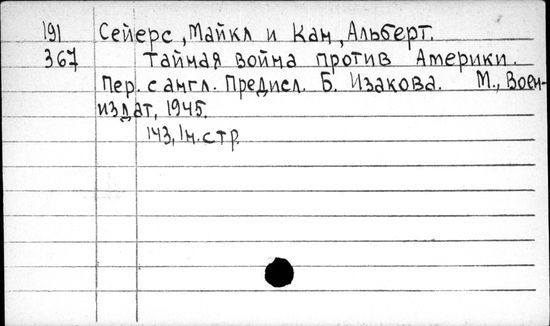 191 Сейерс, Майкл и Кан, Альберт.
367 Тайная война против Америки.
Пер. с англ. Предисл. Б. Изакова. М., Воен-
издат, 1945.
143, 1 н. стр.